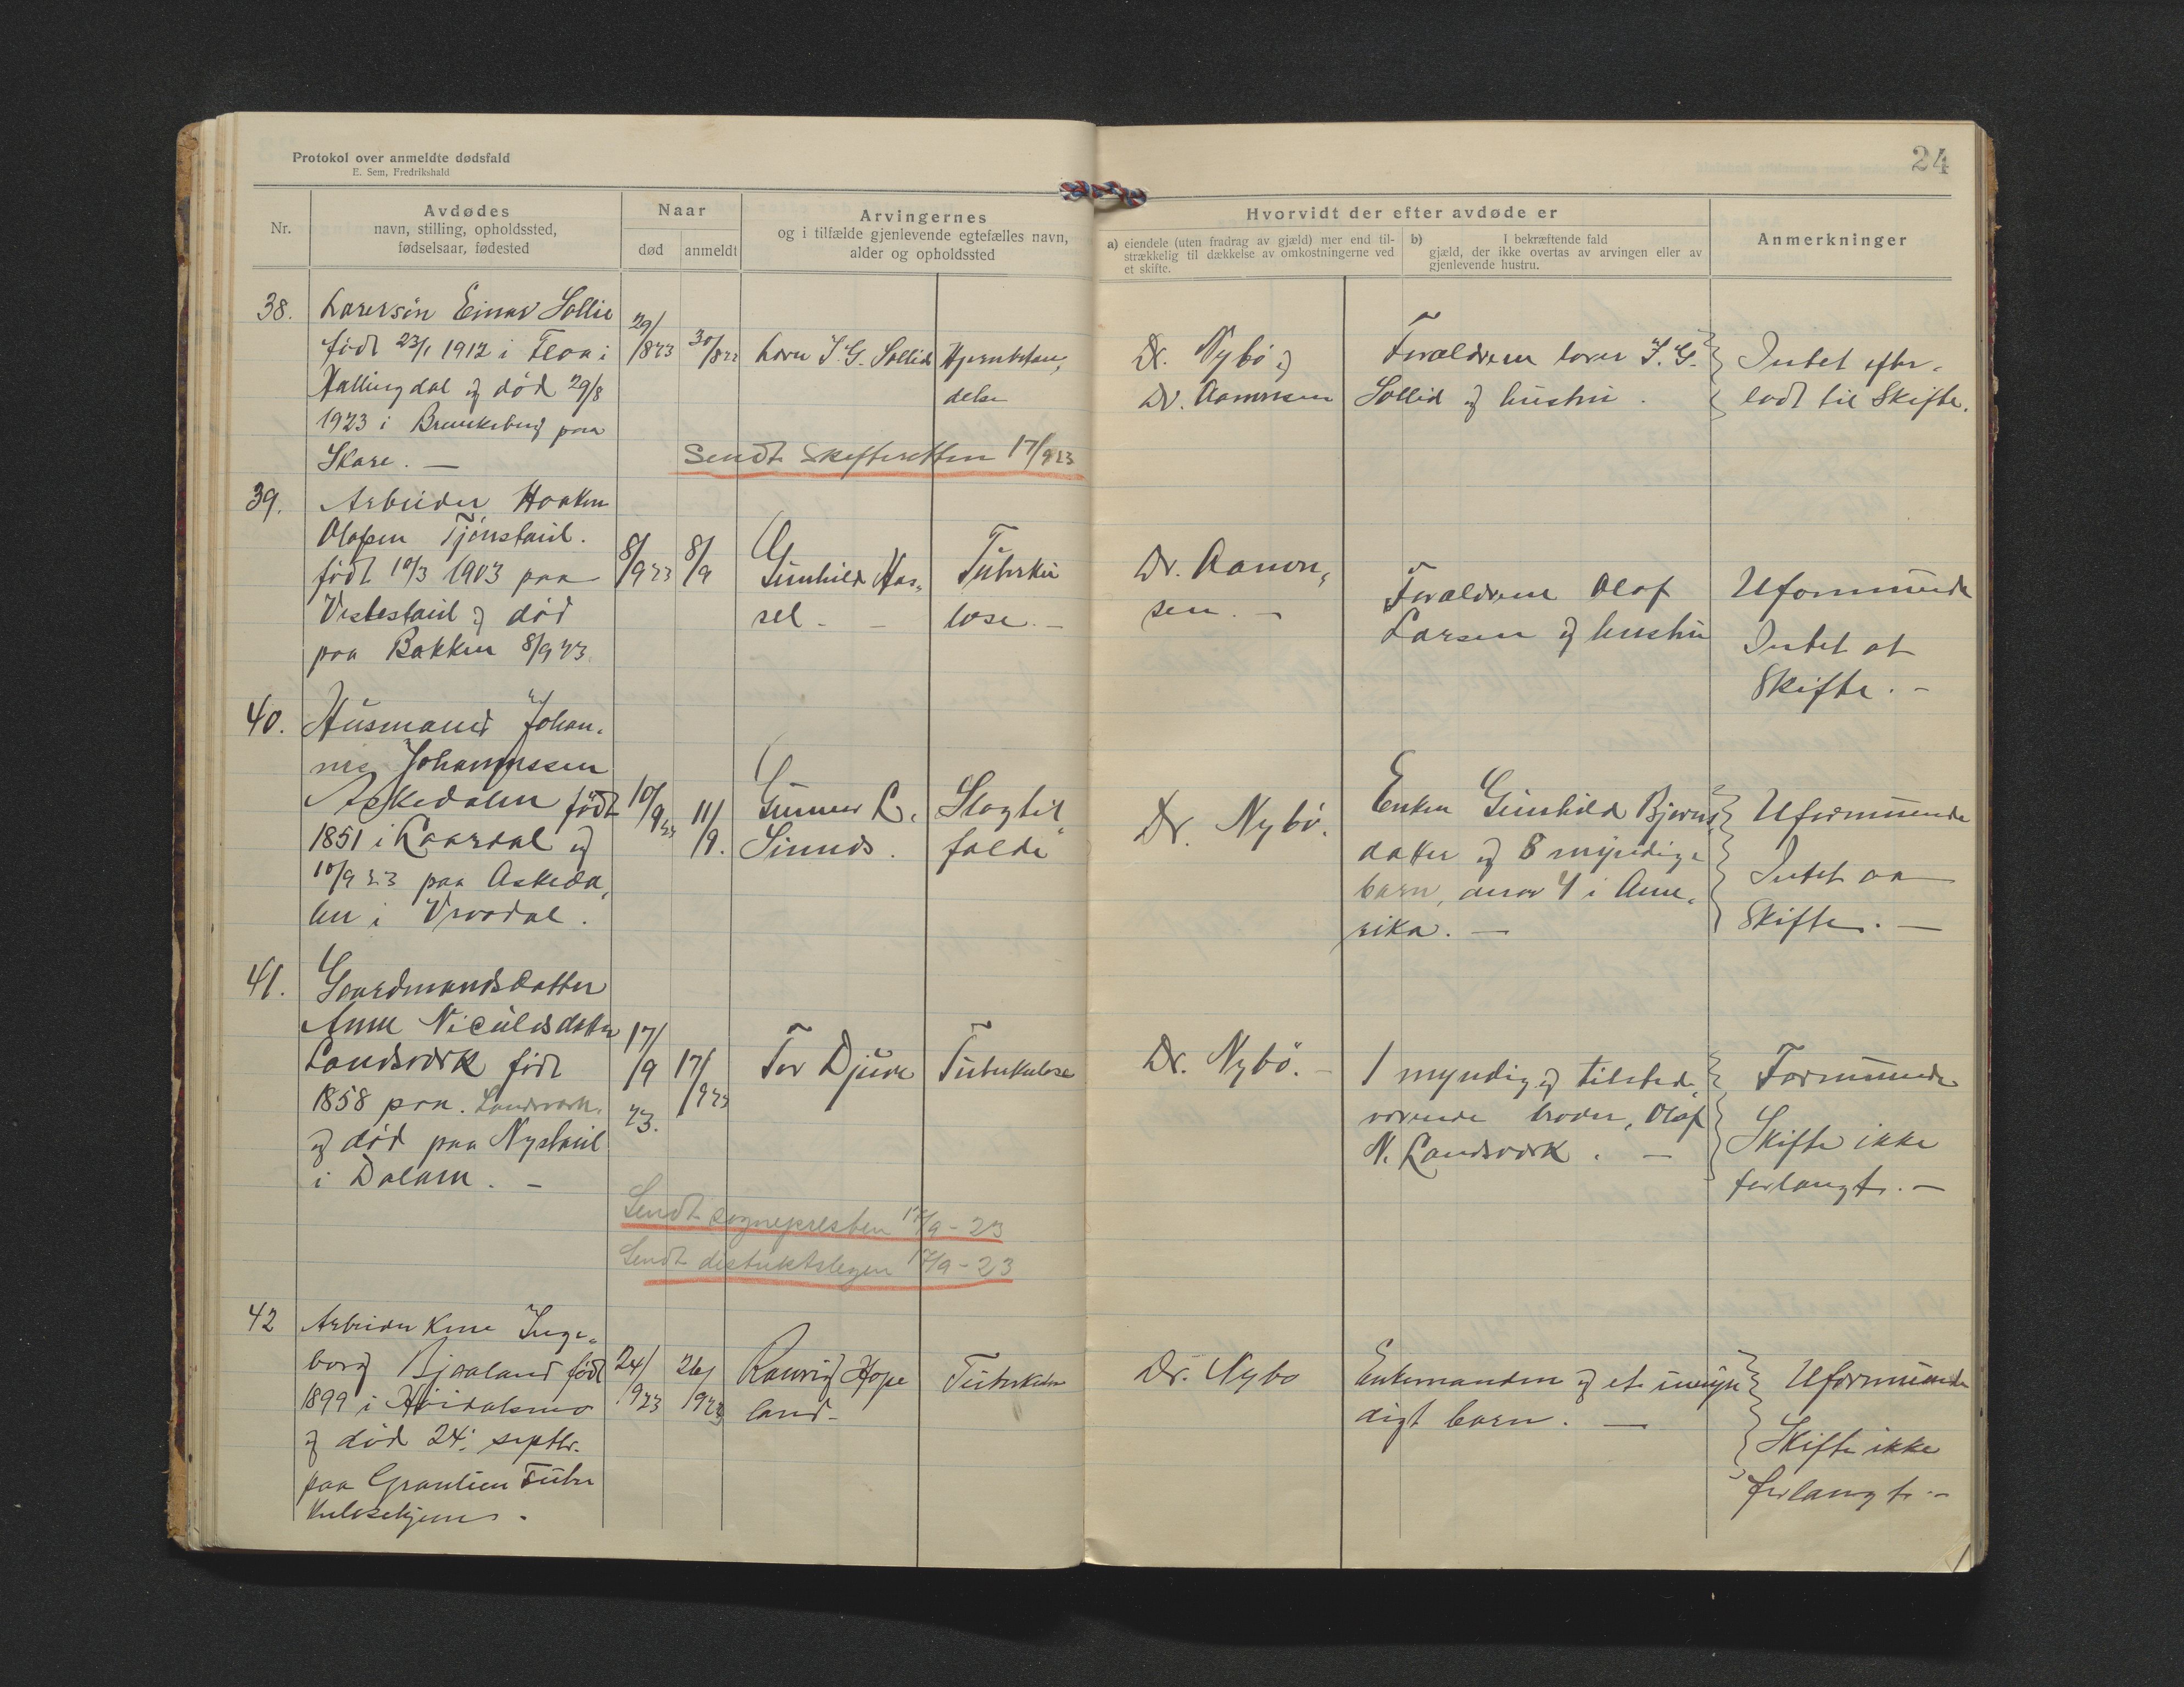 Protokol over anmeldte dødsfald
E. Sem, Fredrikshald
24
Nr.
Avdødes
navn, stilling, opholdssted,
fødselsaar, fødested
Naar
død
anmeldt
Arvingernes
og i tilfælde gjenlevende egtefælles navn,
alder og opholdssted
Hvorvidt der efter avdøde er
a) eiendele (uten fradrag av gjæld) mer end til-
strækkelig til dækkelse av omkostningerne ved
et skifte.
b) I bekræftende fald
gjæld, der ikke overtas av arvingen eller av
gjenlevende hustru.
Anmerkninger
38.
Lærersøn Einar Sollid
født 23/1 1912 i Flaa i
Hallingdal og død 29/8
1923 i Brunkeberg paa
Skare. —
29/8 23
30/8 23
Lærer I. G. Sollid
Hjernebetæn,
delse
Dr. Nybö og
Dr. Aamunsen
Forældrene lærer I. G.
Sollid og hustru.
Intet efter-
ladt til Skifte.
Sendt skifteretten 17/9 23
39.
Arbeider Haaken
Olafsen Tjönstaul.
født 10/3 1903 paa
Vistestaul og død
paa Bakken 8/9 23.
8/9 23
8/9
Gunhild Has,
sel - —
Tuberku
lose. —
Dr. Aamun,
sen. —
Forældrene Olaf
Larsen og hustru
Uformuende
Intet at
Skifte. -
40.
Husmand Johan-
nes Johannessen
Askedalen født
1851 i Laardal og
10/9 23 paa Askeda,
len i Vraadal.
10/9 23
11/9.
Gunnar L.
Sinnds.
Slagtil
fælde
Dr. Nybö.
Enken Gunhild Bjørns,
datter og 8 myndige
barn, derav 4 i Ame-
rika. —
Uformuende
Intet aa
Skifte. —
41.
Gaardmandsdatter
Anne Niculsdatter
Landsverk født
1858 paa Landsverk.
og død paa Nystaul
i Dalane. -
17/9 23.
17/9 23
Tor Djuve
Tuberkulose
Dr. Nybö. -
1 myndig og tilsted,
værende broder, Olaf
N. Landsverk. —
Formuende
Skifte ikke
forlangt. —
Sendt sognepresten 17/9 - 23
Sendt distriktslegen 17/9 - 23
42
Arbeider kone Inge-
borg Bjaaland født
1899 i Höidalsmo
og død 24. septbr.
paa Grantun Tuber
kulosehjem.
24/9 23
26/9 23
Ranveig Hope
land -
Tuberkulose
Dr. Nybo
Enkemanden og et umyn
digt barn. —
Uformuende
Skifte ikke
forlangt. -